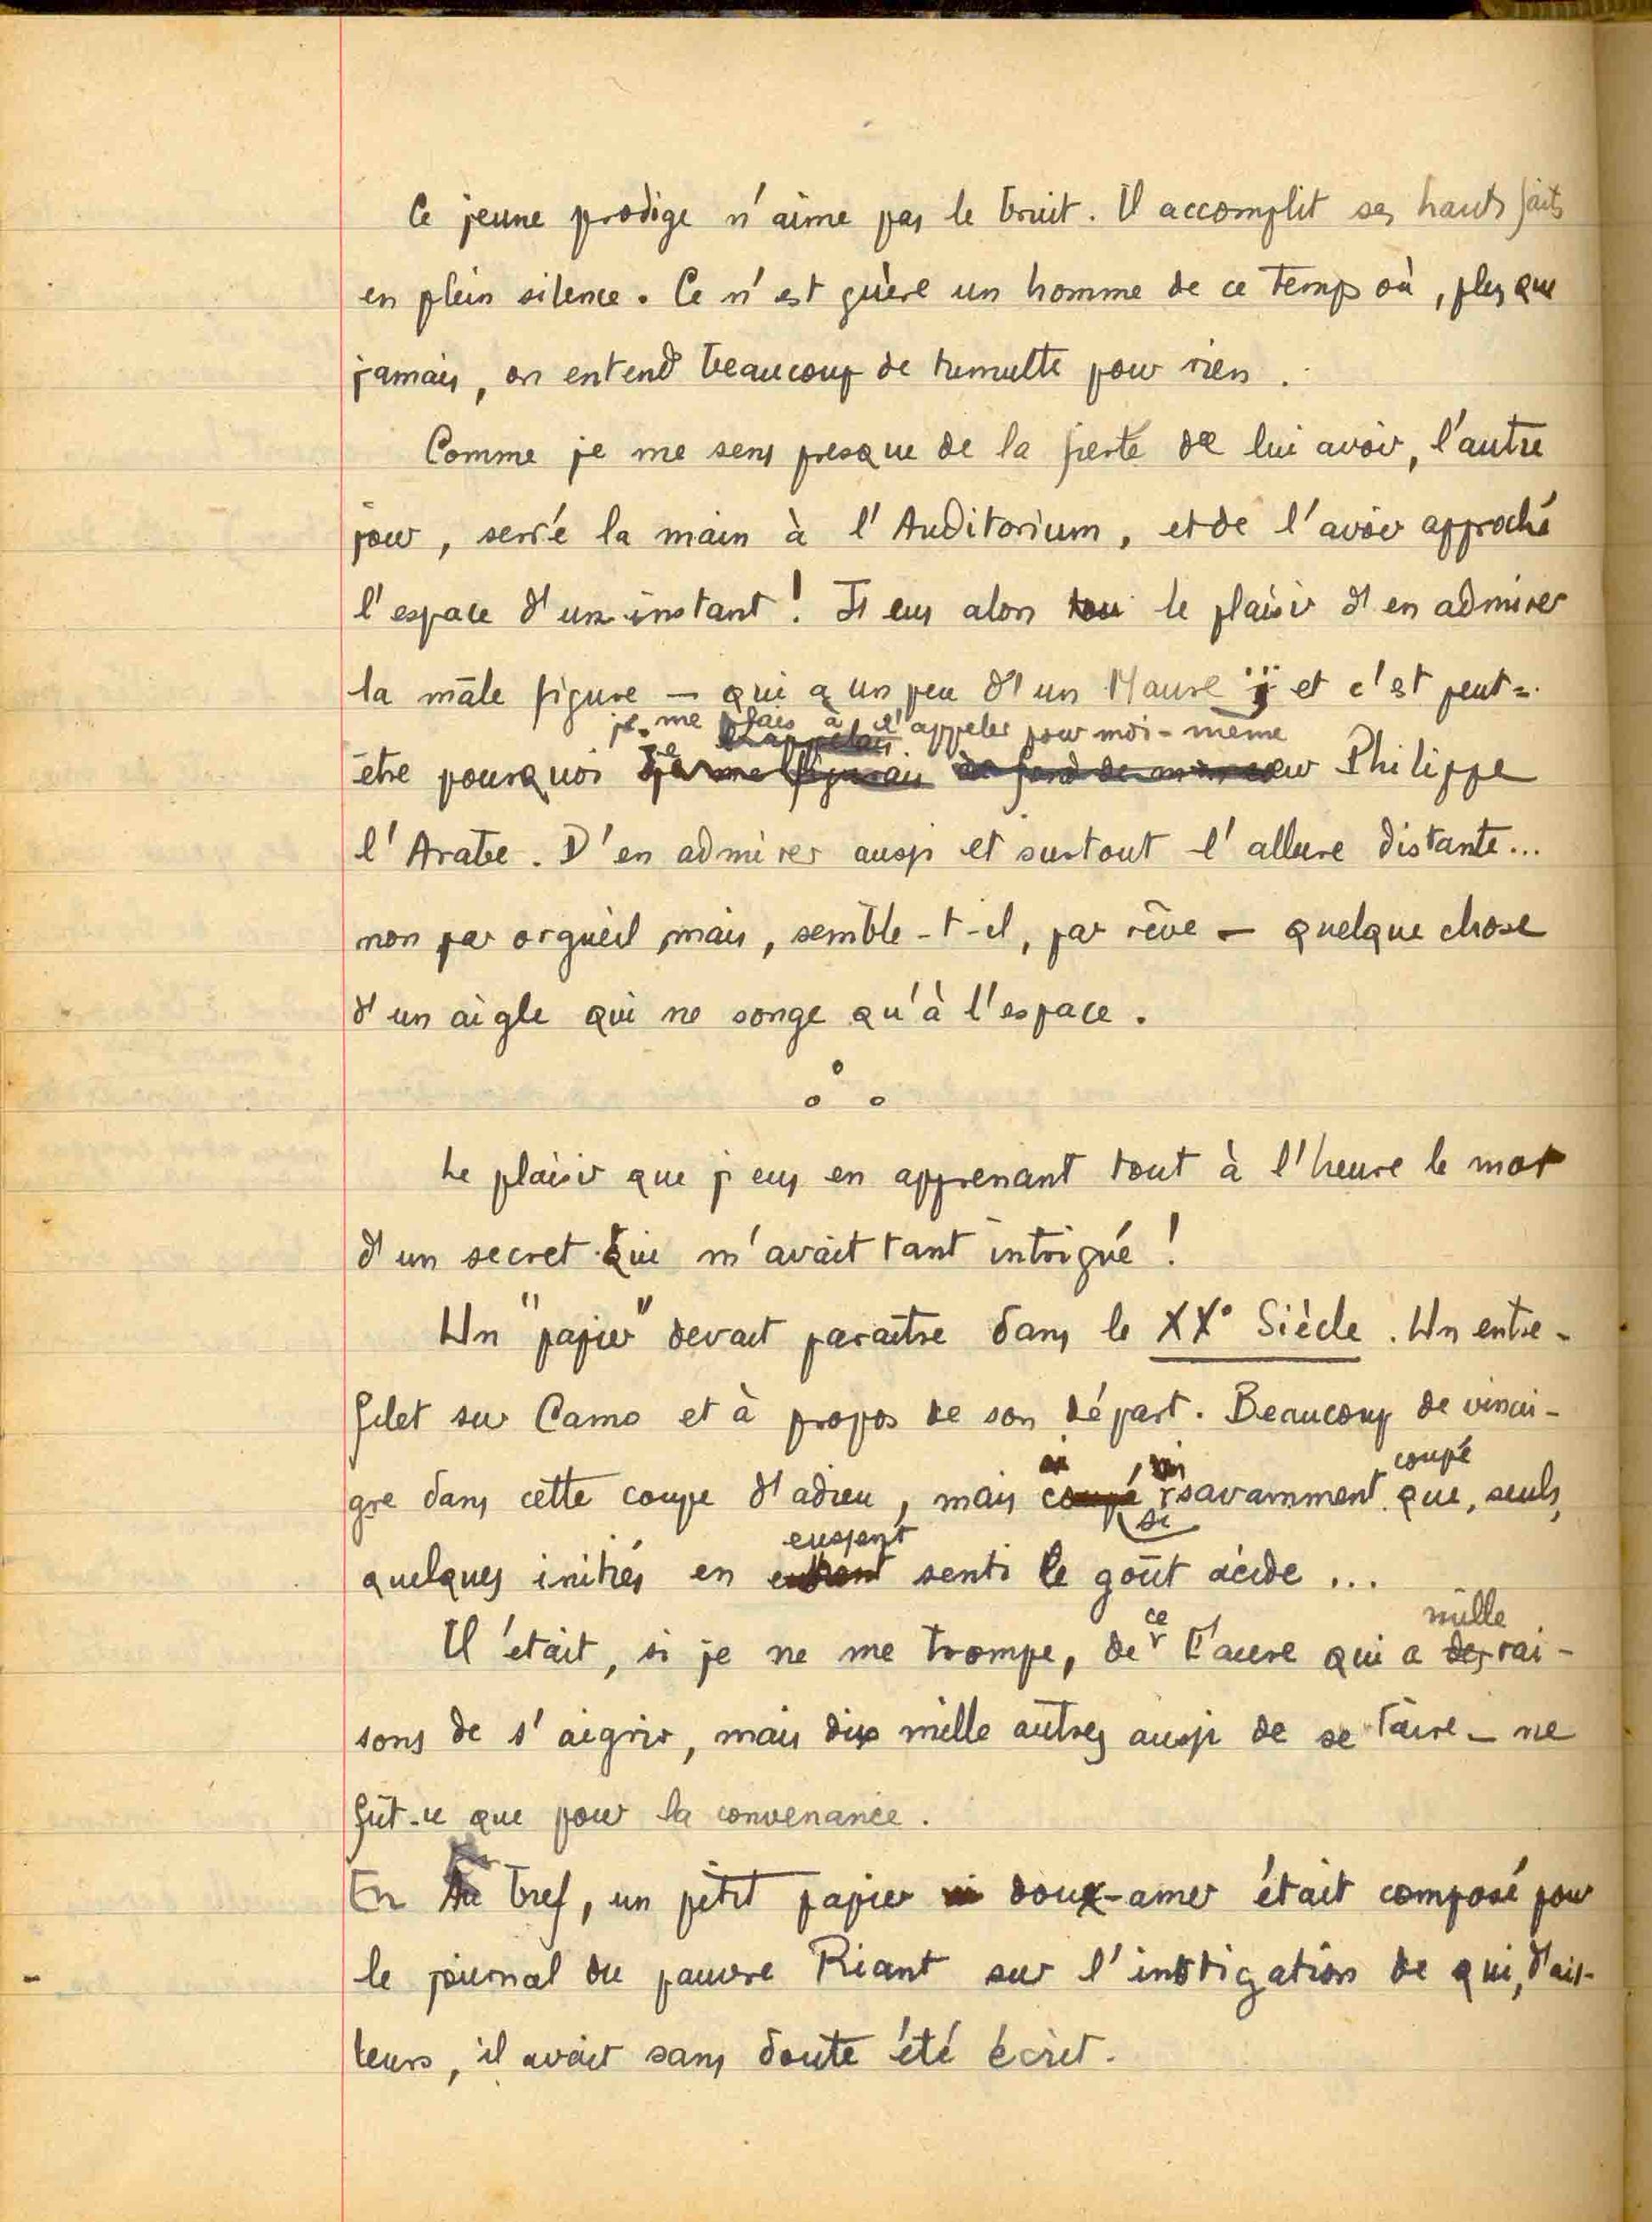 Ce jeune prodige n'aime pas le bruit. Il accomplit ses hauts faits
en plein silence. Ce n'est guère un homme de ce temps où, plus que
jamais, on entend beaucoup de tumulte pour rien.
Comme je me sens presque de la fierté de lui avoir, l'autre
jour, serré la main à l'Auditorium, et de l'avoir approché
l'espace d'un instant! J'eus alors le plaisir d'en admirer
la mâle figure — qui a un peu d'un Maure et c'est peut-
je me plais à l'appeler pour moi-même
être pourquoi Philippe
l'Arabe. D'en admirer aussi et surtout l'allure distante...
non par orgueil mais, semble-t-il, par rêve — quelque chose
d'un aigle qui ne songe qu'à l'espace.
Le plaisir que j'eus en apprenant tout à l'heure le mot
d'un secret qui m'avait tant intrigué!
Un "papier" devait paraître dans le XX° Siècle. Un entre-
filet sur Camo et à propos de son départ. Beaucoup de vinai-
coupé
gre dans cette coupe d'adieu, mais si savamment que, seuls,
eussent
quelques initiés en senti le goût acide...
ce mille
Il était, si je ne me trompe, de Faure qui a des rai-
sons de s'aigrir, mais dix mille autres aussi de se taire — ne
fût-ce que pour la convenance.
En bref, un petit papier doux-amer était composé pour
le journal du pauvre Riant sur l'instigation de qui, d'ail-
leurs, il avait sans doute été écrit.